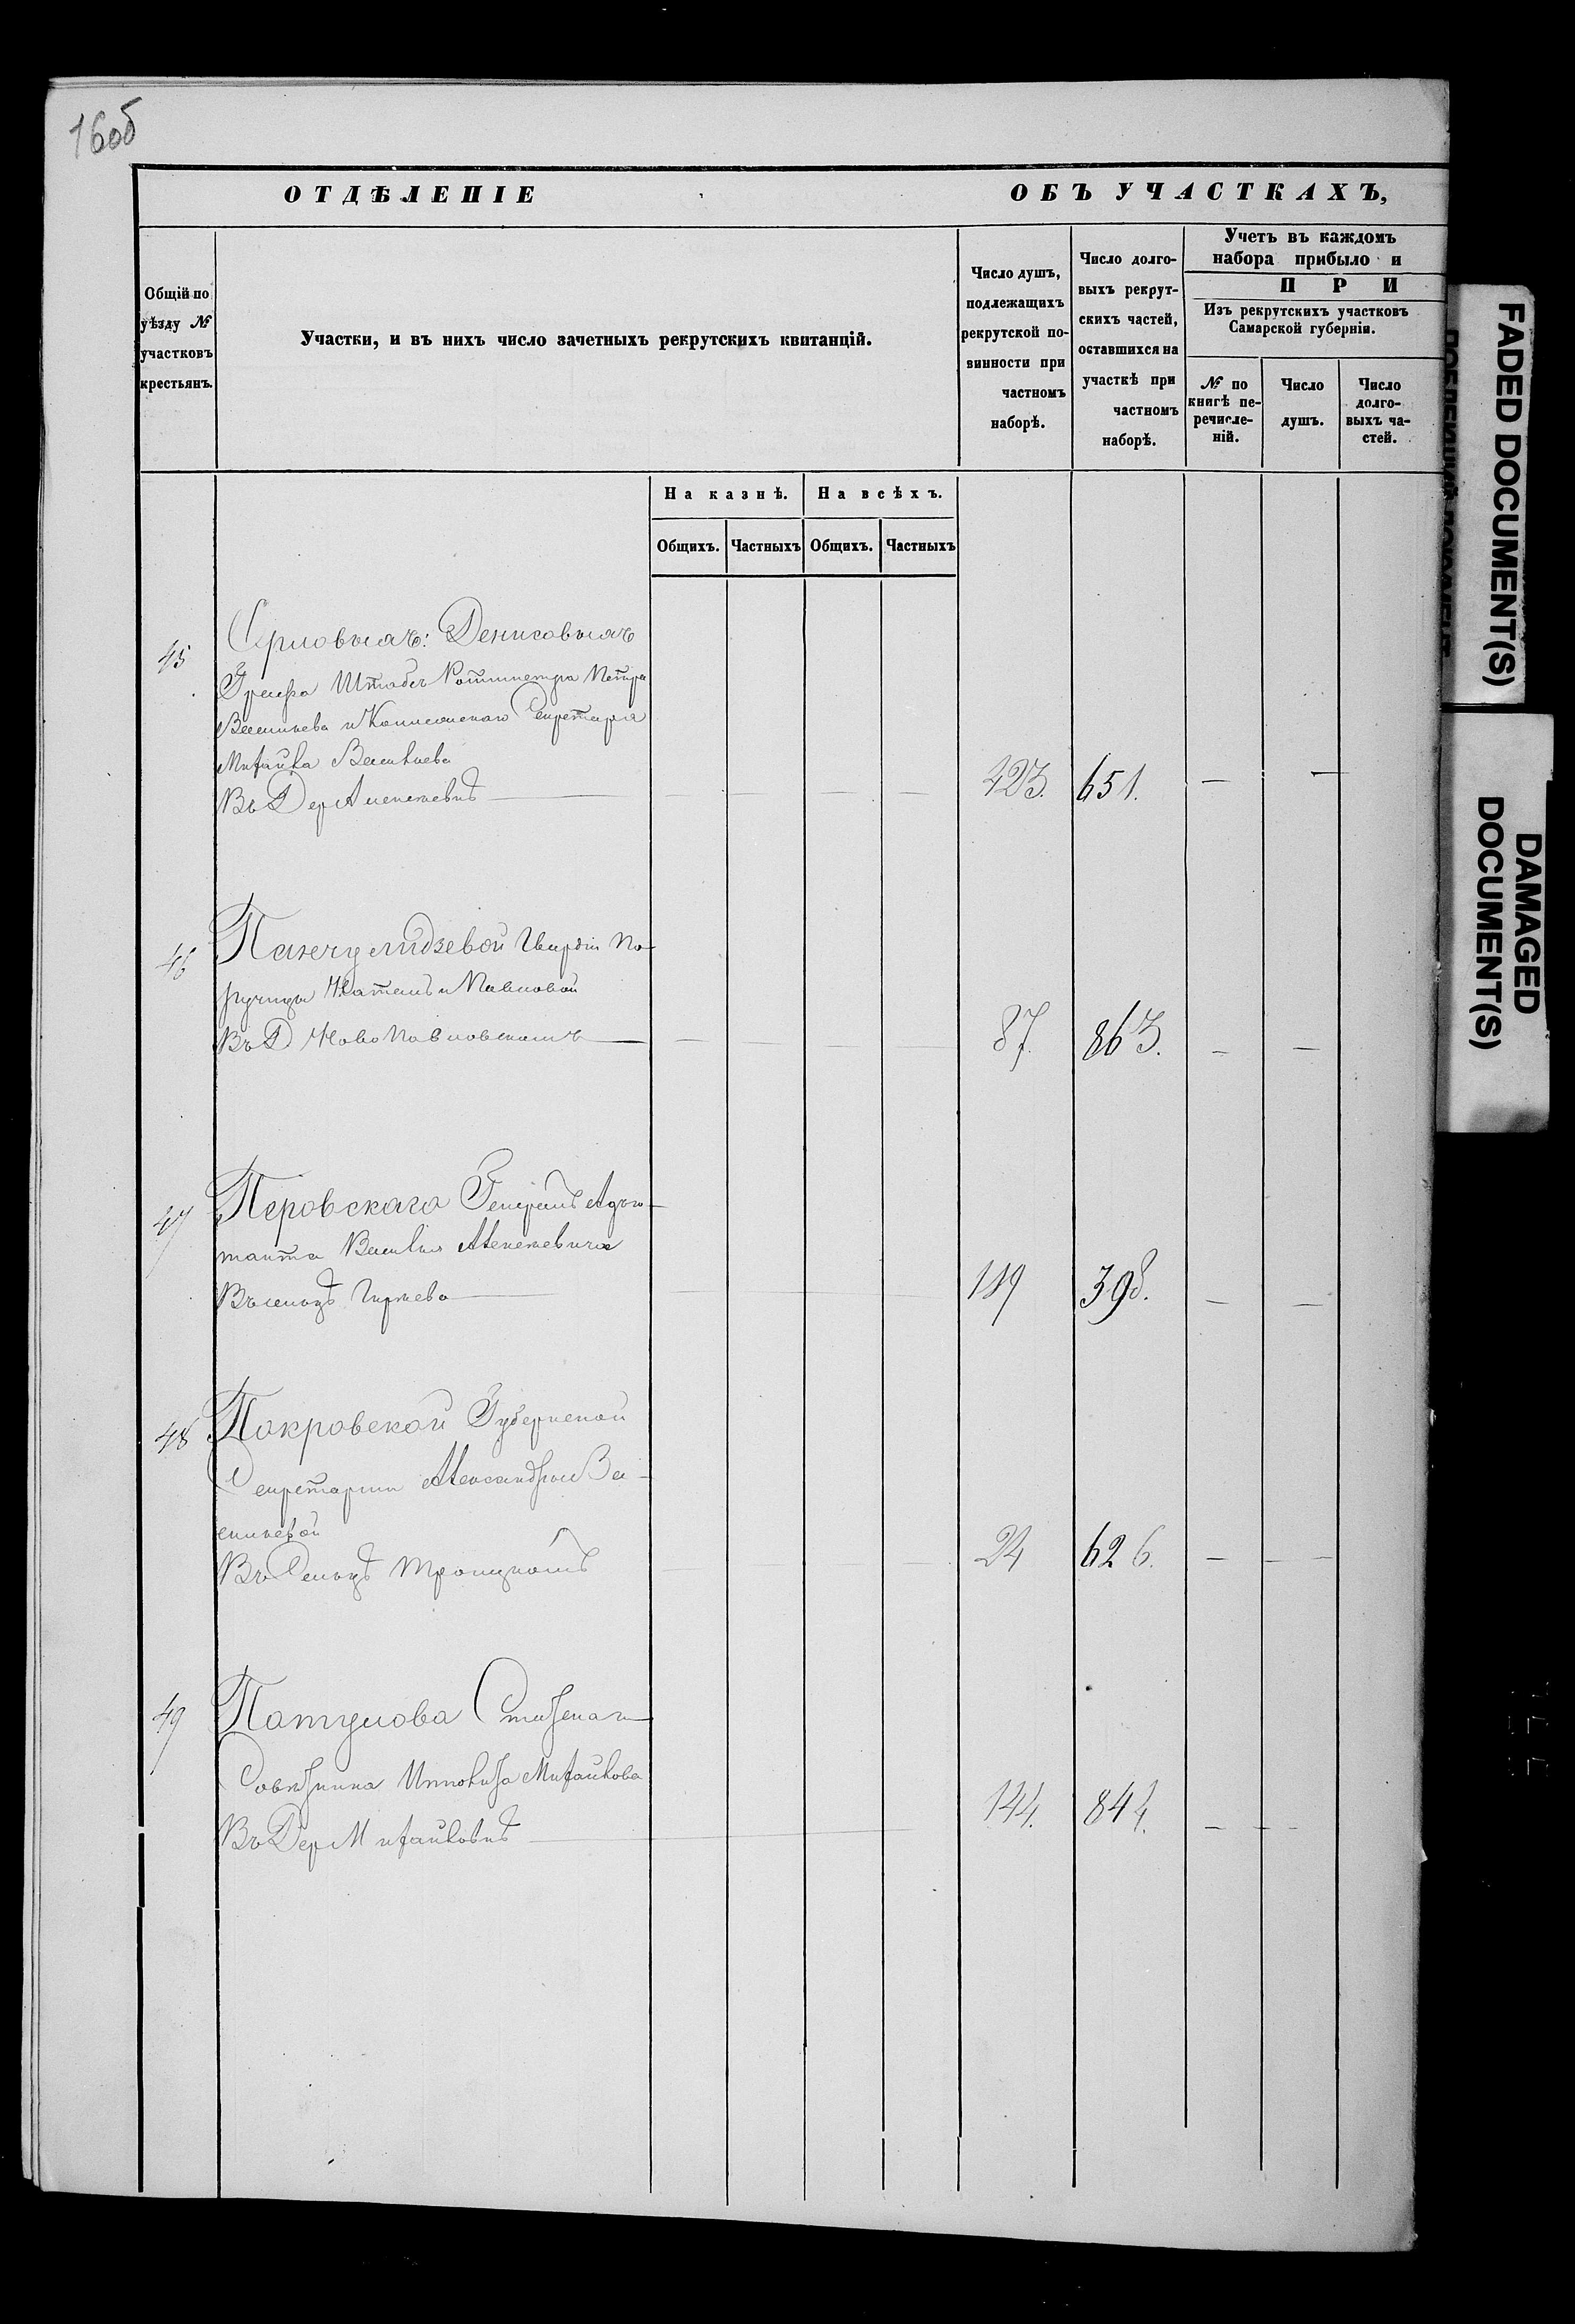 16об
ОТДѢЛЕНІЕ
ОБЪ УЧАСТКАХЪ,
Общій по
уѣзду №
участковъ
крестьянъ.
Участки, и въ нихъ число зачетныхъ рекрутскихъ квитанцій.
Число душъ,
подлежащихъ
рекрутской по-
винности при
частномъ
наборѣ.
Число долго-
выхъ рекрут-
скихъ частей,
оставшихся на
участкѣ при
частномъ
наборѣ.
Учетъ въ каждомъ
набора прибыло и
П Р И
Изъ рекрутскихъ участковъ
Самарской губерніи.
№ по
книгѣ пе-
речисле-
ній.
Число
душъ.
Число
долго-
выхъ ча-
стей.
На казнѣ.
На всѣхъ.
Общихъ.
Частныхъ
Общихъ.
Частныхъ
45
Денисовыхъ
Графа Штабсъ Ротмистра Петра
Васильева и Секретаря
Михайла Васильева
Въ Дер Алексеевкѣ
423. 651.
46
Панчулидзевой Гвардіи По-
ручицы Натальи Павловой
Въ Д Ново Павловскомъ
87. 863.
47
Перовскаго Генералъ Адъю-
танта Василья Алексеевича
Въ сельцѣ Гурьево
119 398.
48
Покровской Губернской
Секретарши Александры Ва-
сильевой
Въ Сельцѣ Троицкомъ
24 626.
49
Потулова Статскаго
Совѣтника Михайлова
Въ Дер Михайловкѣ
144. 844.
FADED DOCUMENT(S)
DAMAGED
DOCUMENT(S)